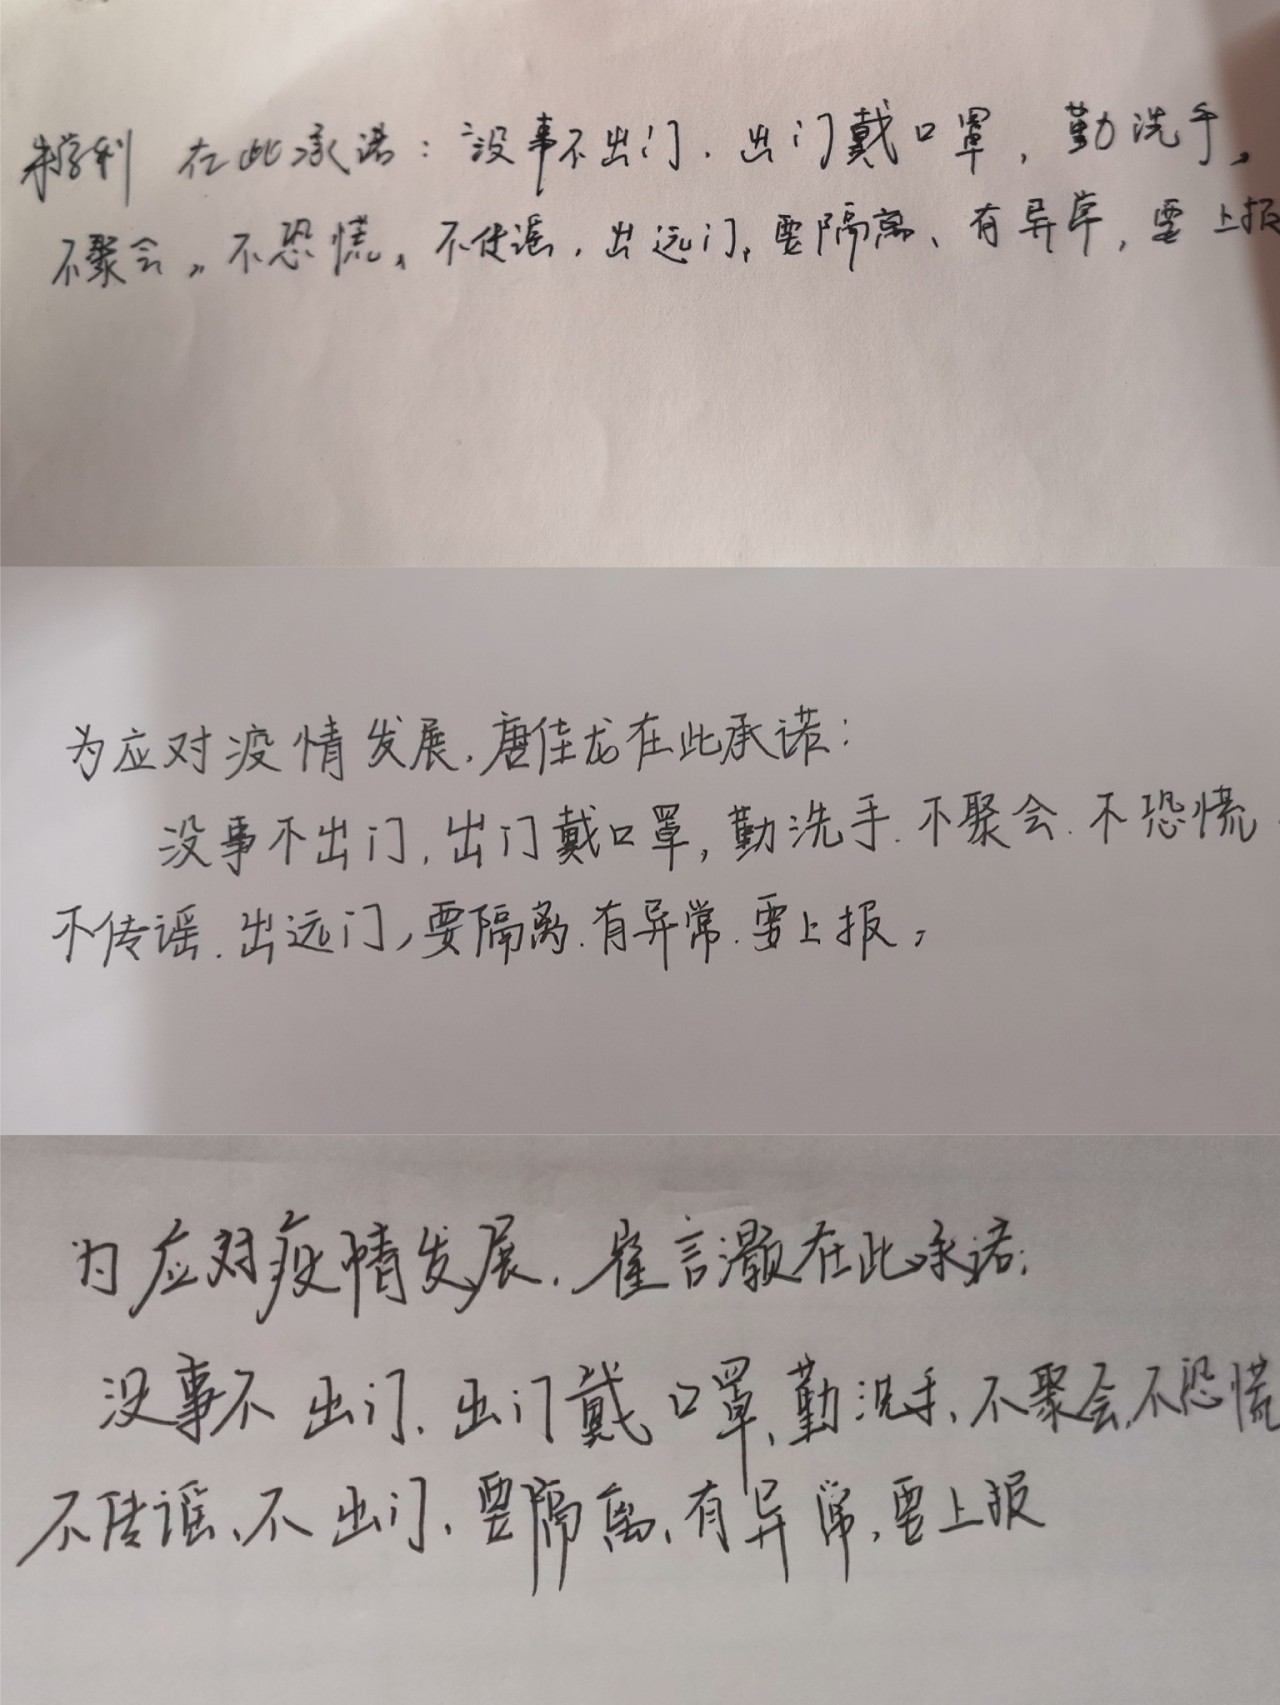 在此承诺：没事不出门．出门戴口罩，勤洗手，
不聚会，不恐慌，不传谣，出远门，要隔离、有异常，要上报
为应对疫情发展，唐佳龙在此承诺：
没事不出门，出门戴口罩，勤洗手．不聚会．不恐慌．
不传谣．出远门，要隔离．有异常．要上报，
为应对疫情发展，崔言灏在此承诺：
没事不出门、出门戴口罩、勤洗手、不聚会、不恐慌
不传谣、不出门、要隔离、有异常，要上报